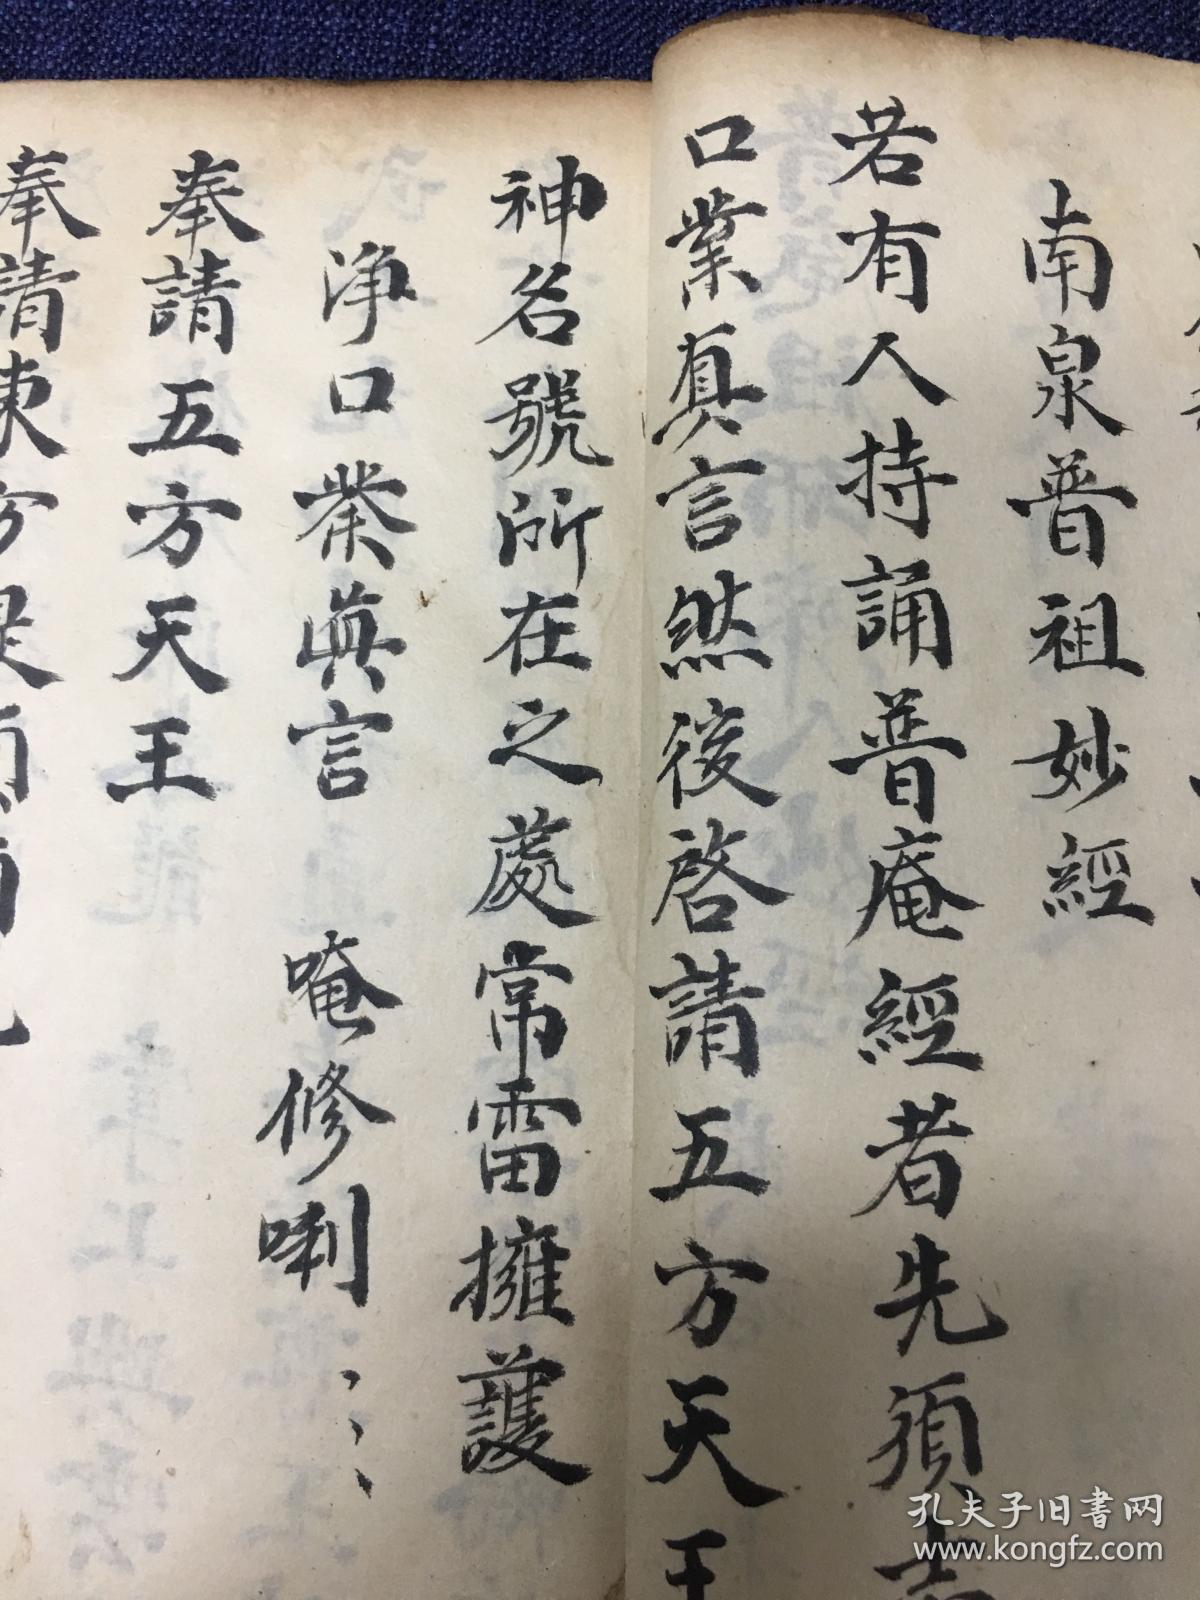 南泉普祖妙經
若有人持誦普庵經者先須
口業真言然後啓請五方天王
神名號所在之處常雷擁護
净口業眞言 唵修唎
奉請五方天王
奉請東方
孔夫子旧书网
www.kongfz.com